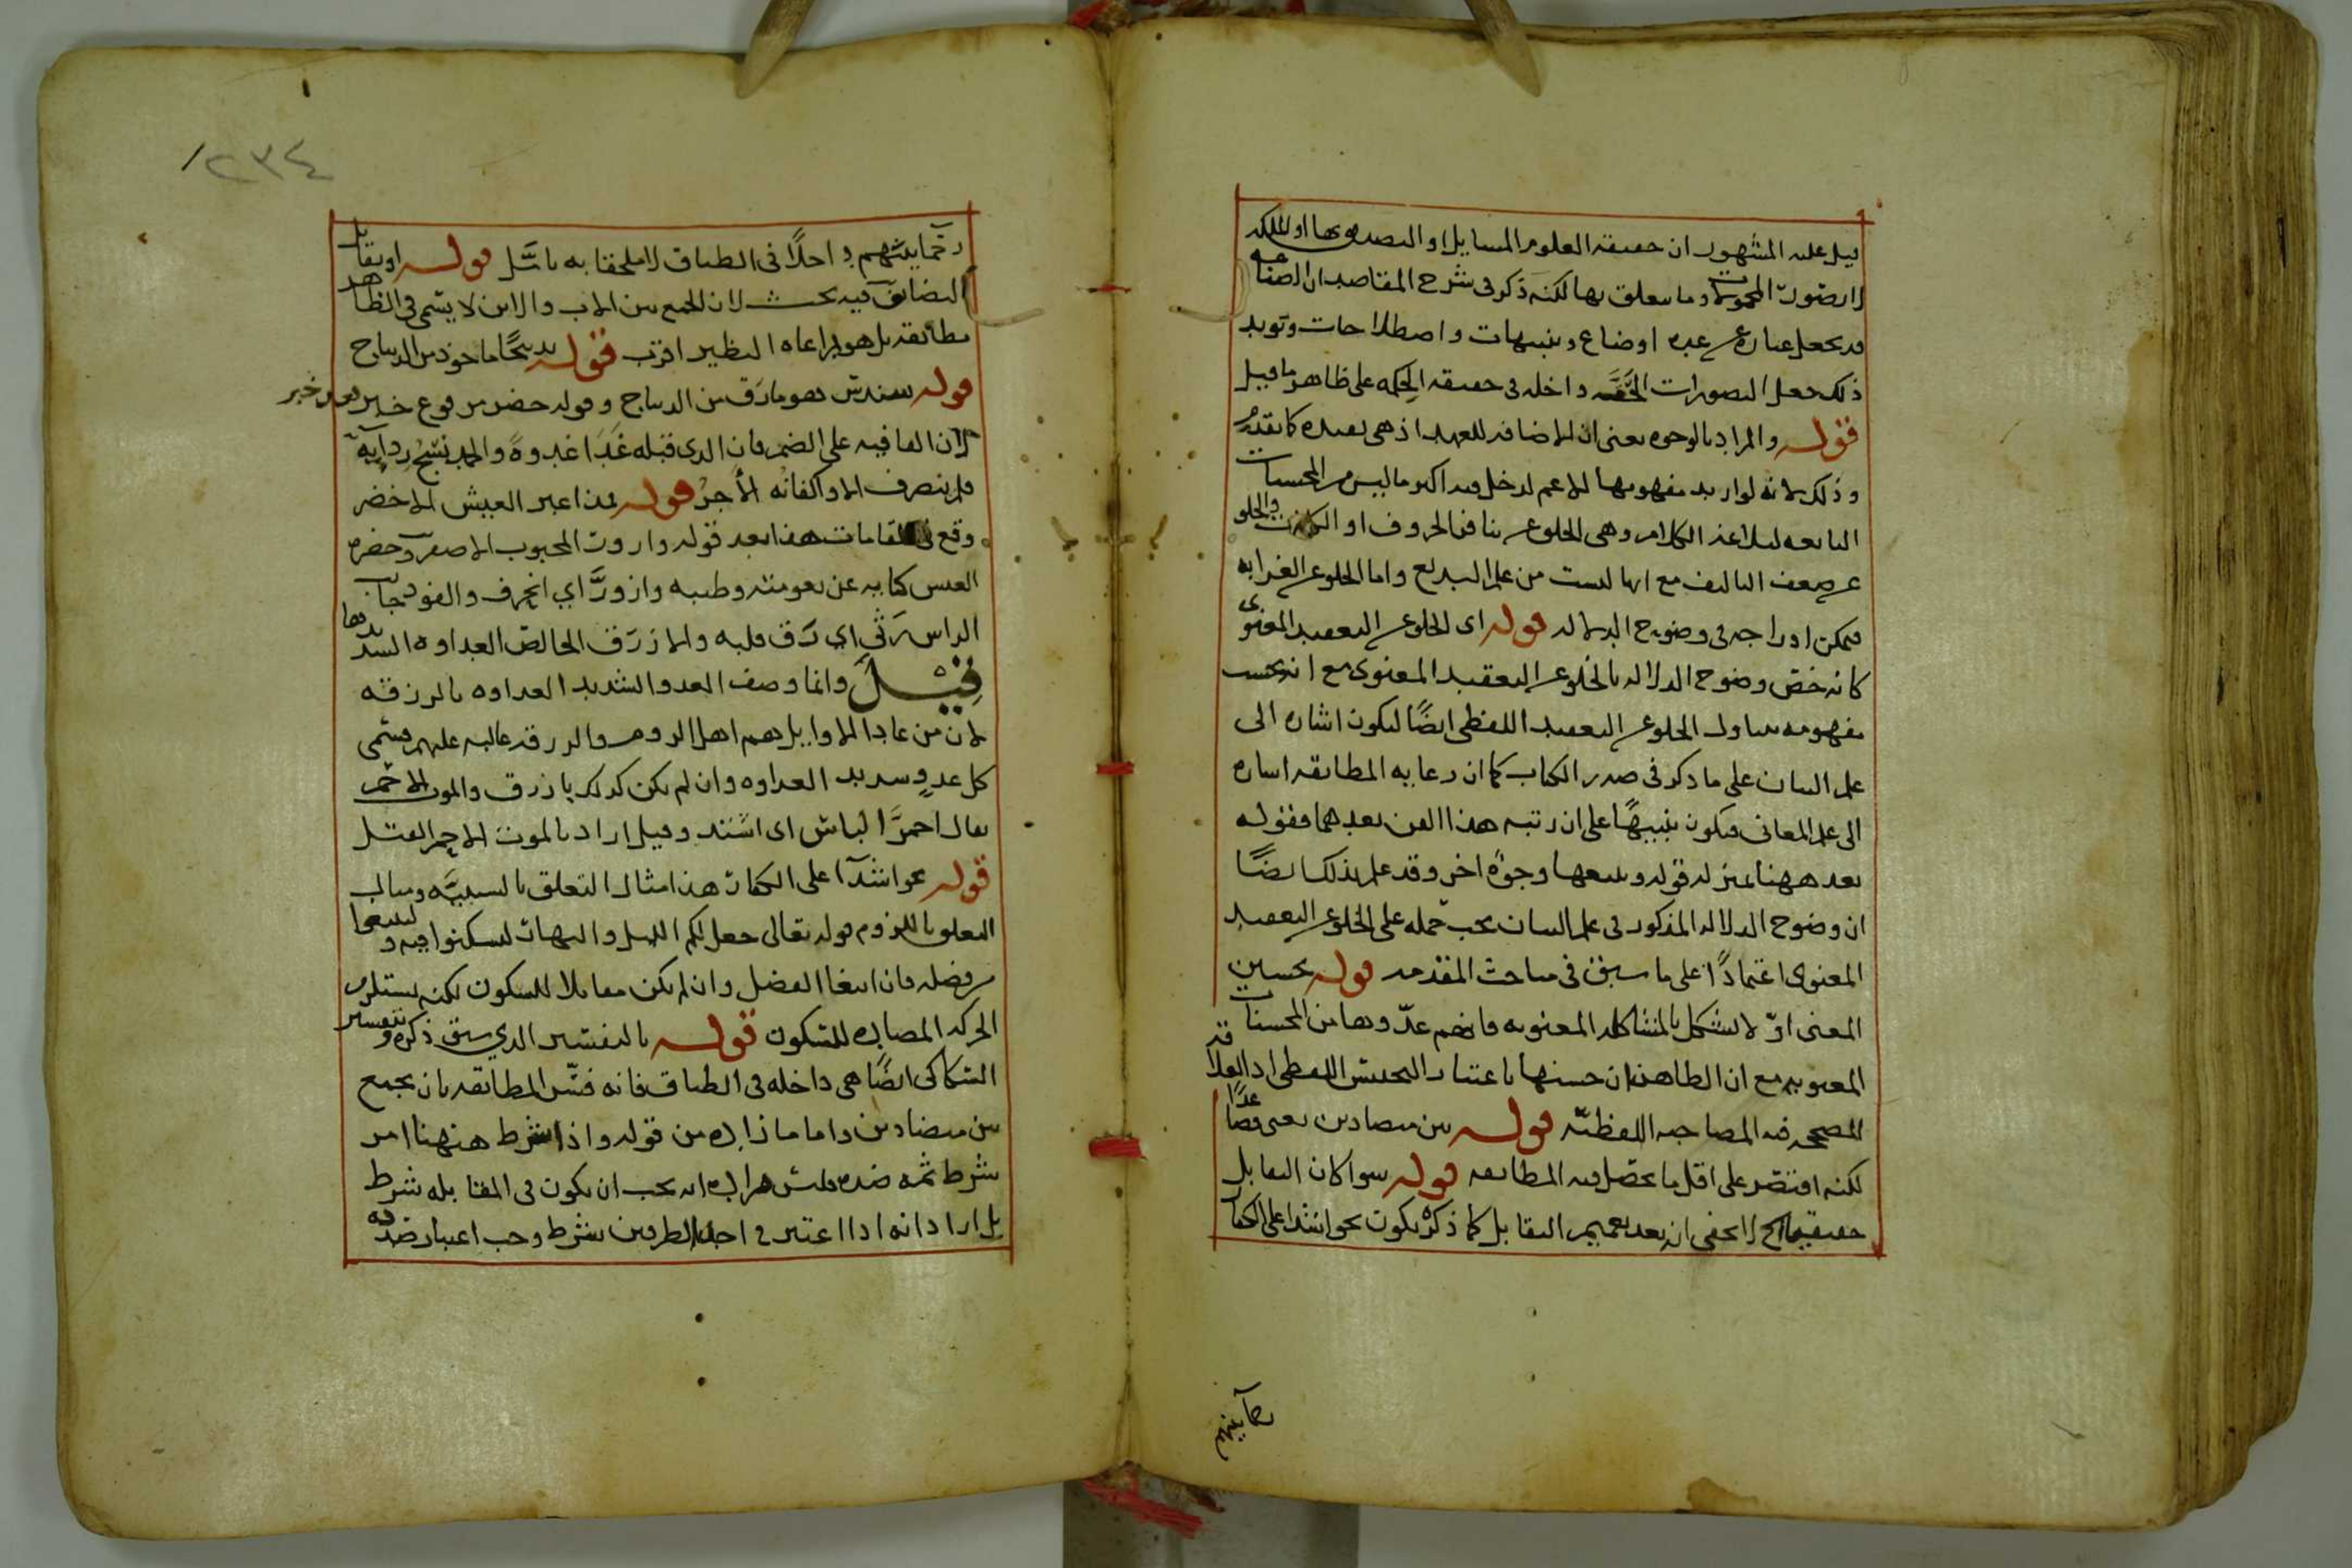 قيل عليه المشهور ان حقيقة العلوم المسايل او التصديق بها او الملكه
لا تصورت المحمولات وما يتعلق بها لكنه ذكر في شرح المقاصد ان الصناعه
قد يجعل عباره عن عده اوضاع وتنبيهات واصطلاحات وتويد
ذلك جعل التصورات الحقه داخله في حقيقه الحكمه على ظاهر ما قيل
قوله والمراد بالوجوه يعنى ان الاضافه للعهد اذ هي بعيده كما تقدم
وذلك لانه لو اريد مفهومها الاعم لدخل فيه اكثر ما ليس من المحسنات
التابعه لبلاغه الكلام وهي الخلوعن تنافر الحروف او الكلمات والخلو
عن ضعف التاليف مع انها ليست من علم البديع واما الخلو عن الغرابه
فيمكن ادراجه في وضوح الدلاله قوله اى الخلو عن التعقيد المعنوى
كانه خص وضوح الدلاله بالخلو عن التعقيد المعنوى مع انه بحسب
مفهومه يتناول الخلو عن التعقيد اللفظى ايضًا ليكون اشاره الى
علم البيان على ما ذكر في صدر الكتاب كما ان رعايه المطابقه اشاره
الى علم المعانى فيكون تنبيهًا على ان رتبه هذا الفن بعدهما فقوله
بعد ههنا بمنزله قوله ويتبعها وجوهٌ اخر وقد علم بذلك ايضًا
ان وضوح الدلاله المذكور في علم البيان يجب حمله على الخلو عن التعقيد
المعنوى اعتمادًا على ما سبق في مباحث المقدمه قوله تحسين
المعنى اوّلا يشكل بالمشاكله المعنويه فانهم عدّوها من المحسنات
المعنويه مع ان الظاهر ان حسنها باعتبار التحسين اللفظى اذ العلاقه
المصححه فيه المصاحبه اللفظيّه قوله بين متضادين يعنى قصدًا
لكنه اقتصر على اقل ما يحصل فيه المطابقه قوله سوا كان التقابل
حقيقيا الخ لا يخفى انه بعد تعميم التقابل كما ذكره يكون نحو اشدا على الكفار
رحما بينهم
رحما بينهم داخلًا في الطباق لا ملحقا به تامّل قوله او تقابل
التضايف فيه بحث لان الجمع بين الاب والابن لا يسمى في الظاهر
مطابقه بل هو بمراعاه النظير اقرب قوله تدبيجًا ماخوذ من الديباج
قوله سندس وهو ما رقّ من الديباج وقوله خضر مرفوع خبر بعد خبر
لان القافيه على الضم فان الذى قبله غَدَا غدوةً والحمد نسْجُ ردايه
فلم ينصرف الا واكفانُه الأجرُ قوله فمذ اغبر العيش الاخضر
وقع في المقامات هذا بعد قوله وازورّ المحبوب الاصفر وخضره
العيش كنايه عن نعومته وطيبه وازورَّ اي انحرف والفود جانب
الراس رثى اي رَق قلبه والازرق الخالص العداوه الشديدها
قيل وانما وصف العدو الشديد العداوه بالزرقه
لان من عادا الاوايل هم اهل الروم والزرقه غالبه عليهم فسمى
كل عدوٍ شديد العداوه وان لم يكن كذلك بازرق والموت الاحمر
يقال احمرَّ الباس اى اشتد وقيل اراد بالموت الاحمر القتل
قوله نحو اشدآ على الكفار هذا مثال التعلق بالسببيَّه ومثال
التعلق باللزوم قوله تعالى جعل لكم الليل والنهار لتسكنوا فيه ولتبتغوا
من فضله فان ابتغا الفضل وان لم يكن مقابلا للسكون لكنه يستلزم
الحركه المضاده للسكون قوله بالتفسير الذي سبق ذكره وتفسير
السكاكى ايضًا هى داخله في الطباق فانه فسّر المطابقه بان يجمع
بين متضادين واما ما زاده من قوله واذا شرط ههنا امر
شرط ثمه ضده فليس مراده انه يجب ان يكون في المقابله شرط
بل اراد انه اذا اعتبر في احد الطرفين شرط وجب اعتبار ضده
٢٣٤